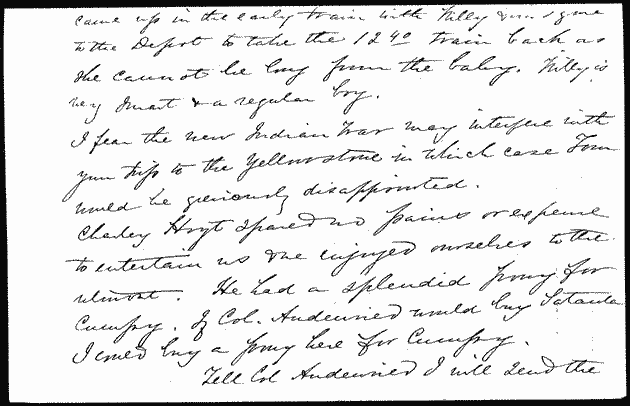 came up in the early train with Willy & has gone
to the Depot to take the 12 40 train back as
she cannot be long from the baby. Willy is
very smart & a regular boy.
I fear the new Indian War may interfere with
your trip to the Yellowstone in which case Tom
would be grievously disappointed.
Charley Hoyt spared no pains or expense
to entertain us & we enjoyed ourselves to the
utmost. He had a splendid pony for
Cumpy. If Col. Audenried would buy Satanta
I could buy a pony here for Cumpy.
Tell Col Audenried I will send the